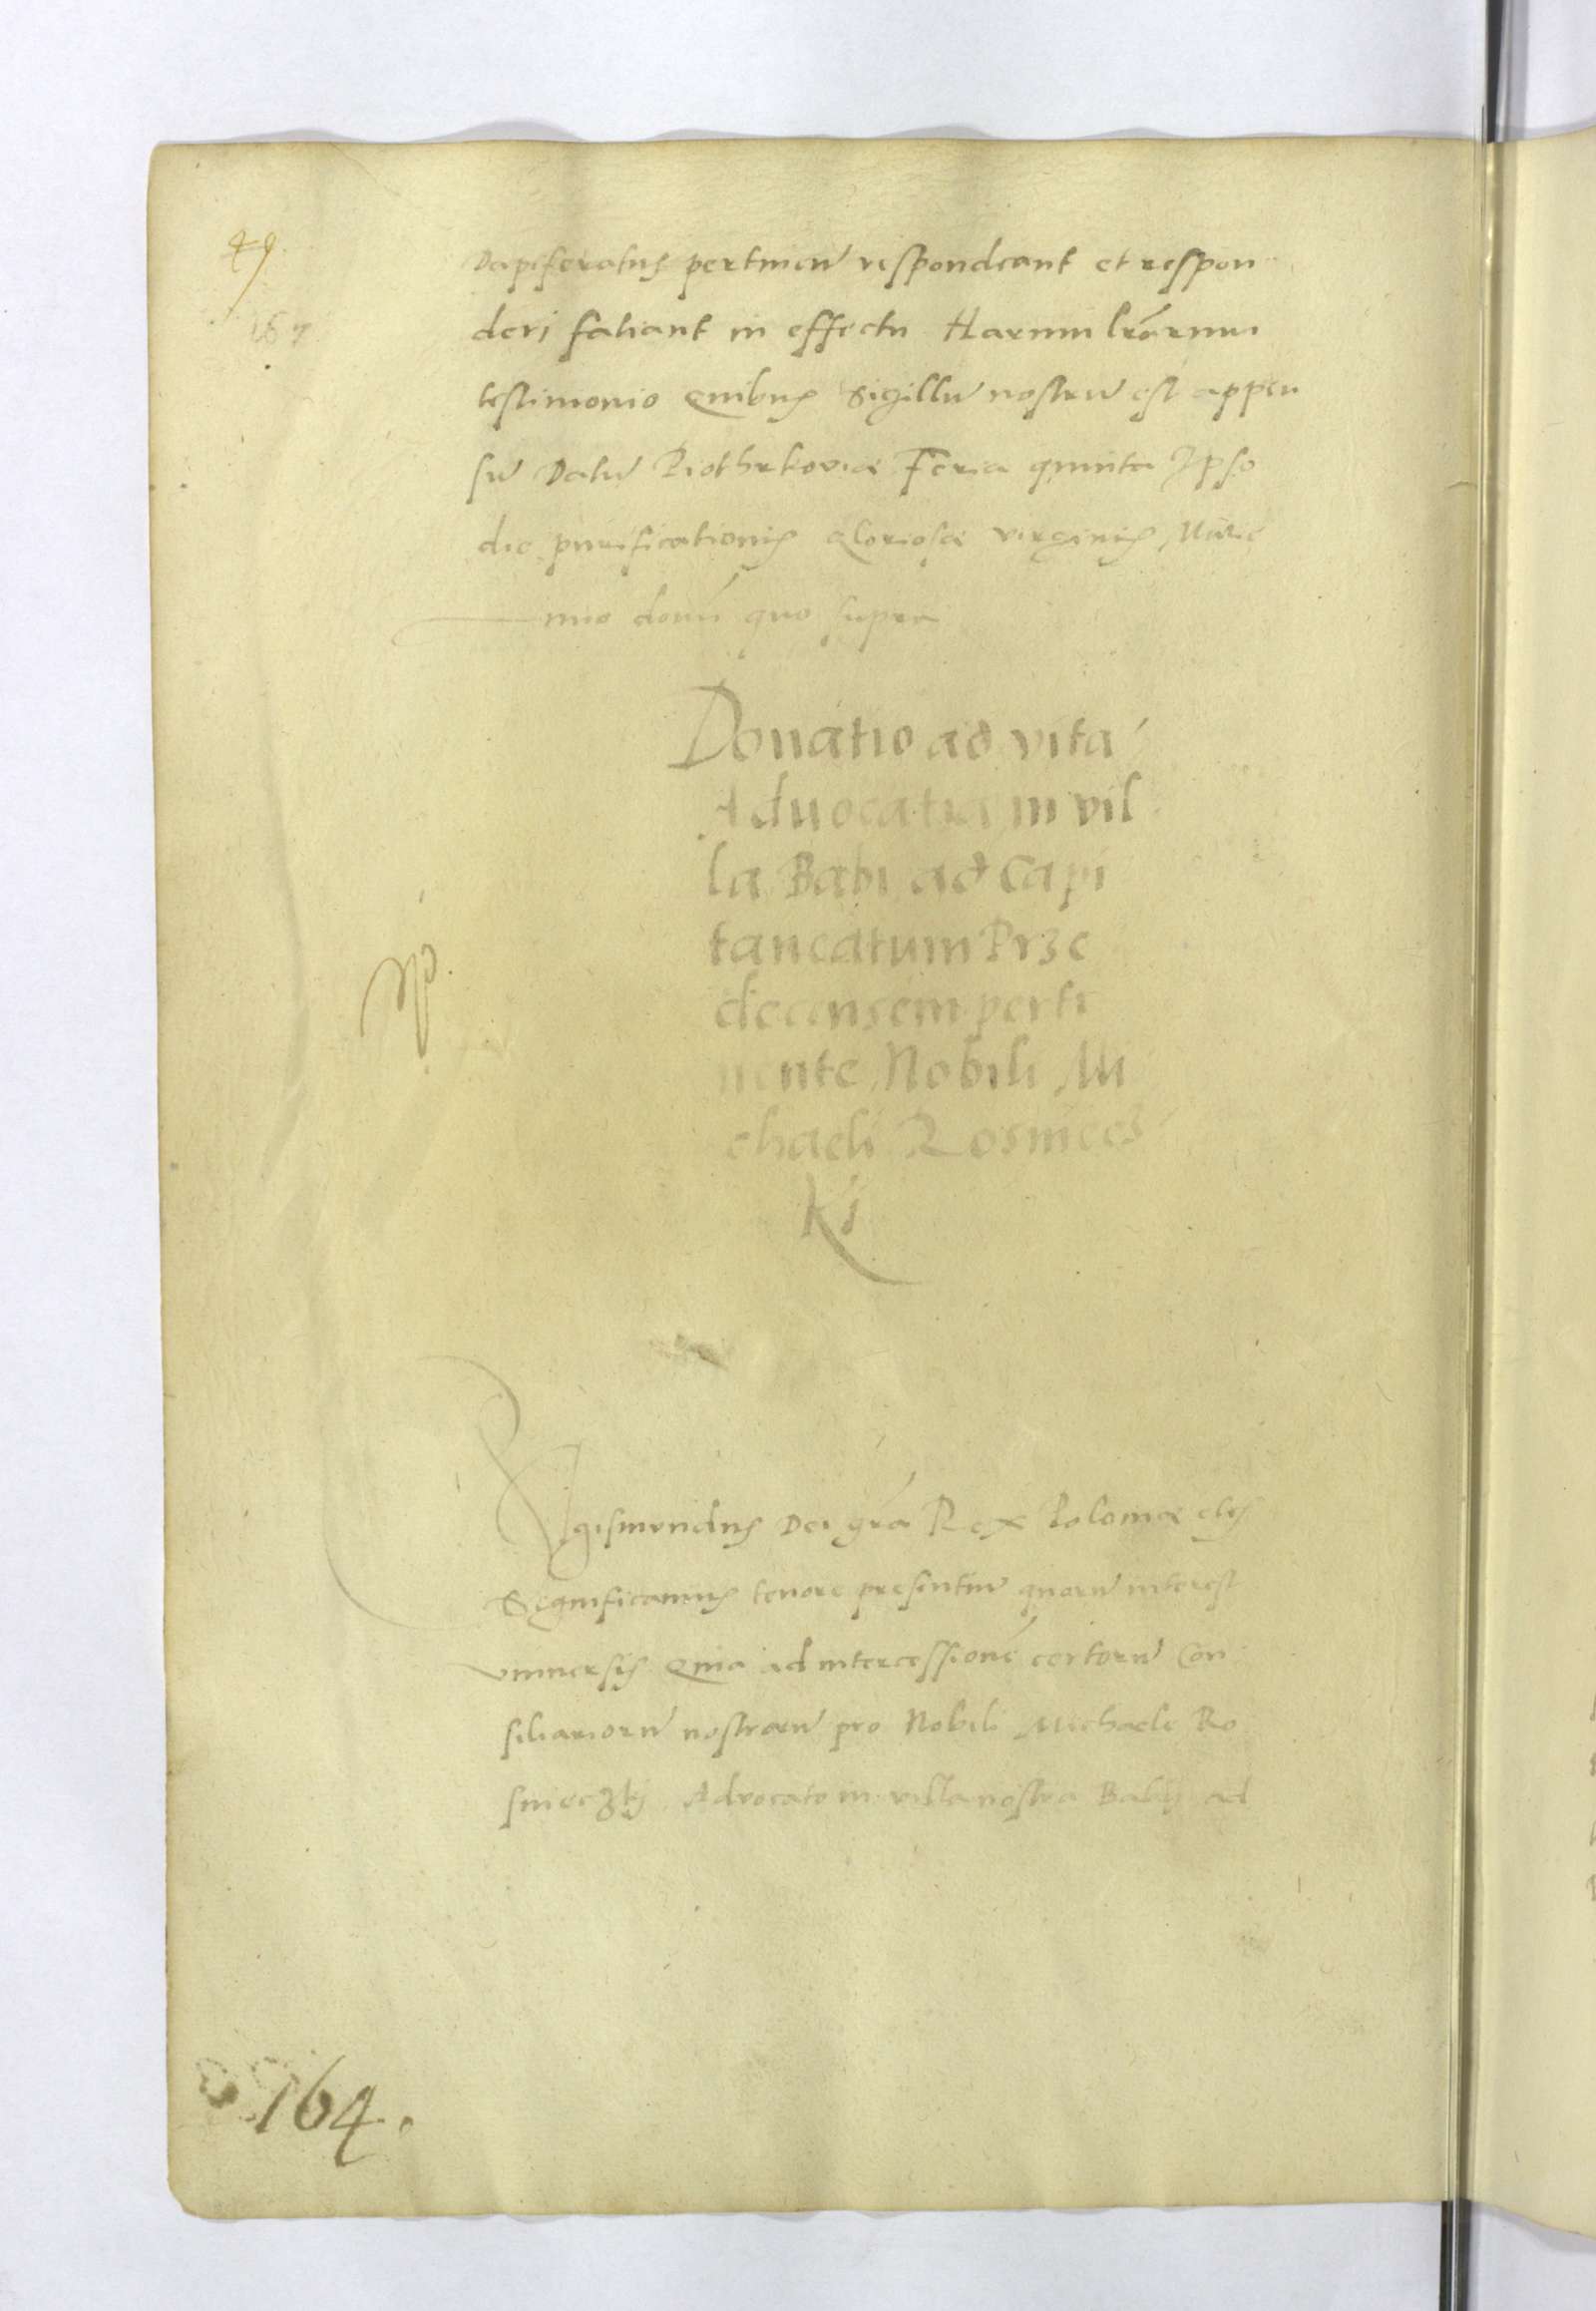 49.
167
Dapiferatus pertinen̄ respondeant et respon
deri fatiant in effectu Harum lr̄arum
testimonio Quibus Sigillū nostrū est appen
sū Datū Piothrkoviæ Feria quinta Ipso
die purificationis gloriosæ virginis Marie
nno domī quo supra
Donatio ad vitā
Aduocatiæ in vil
la Babi ad Capi
taneatum Prze
decensem perti
nente Nobili Mi
chaeli Rosniecs
ki
Sigismundus Dei grā Rex Poloniæ etc
Significamus tenore presentiū quorū interest
vniuersis Quia ad intercessionē certorū Con
siliariorū nostrorū pro Nobili Michaele Ro
snieczky Advocato in villa nostra Baby ad
164.